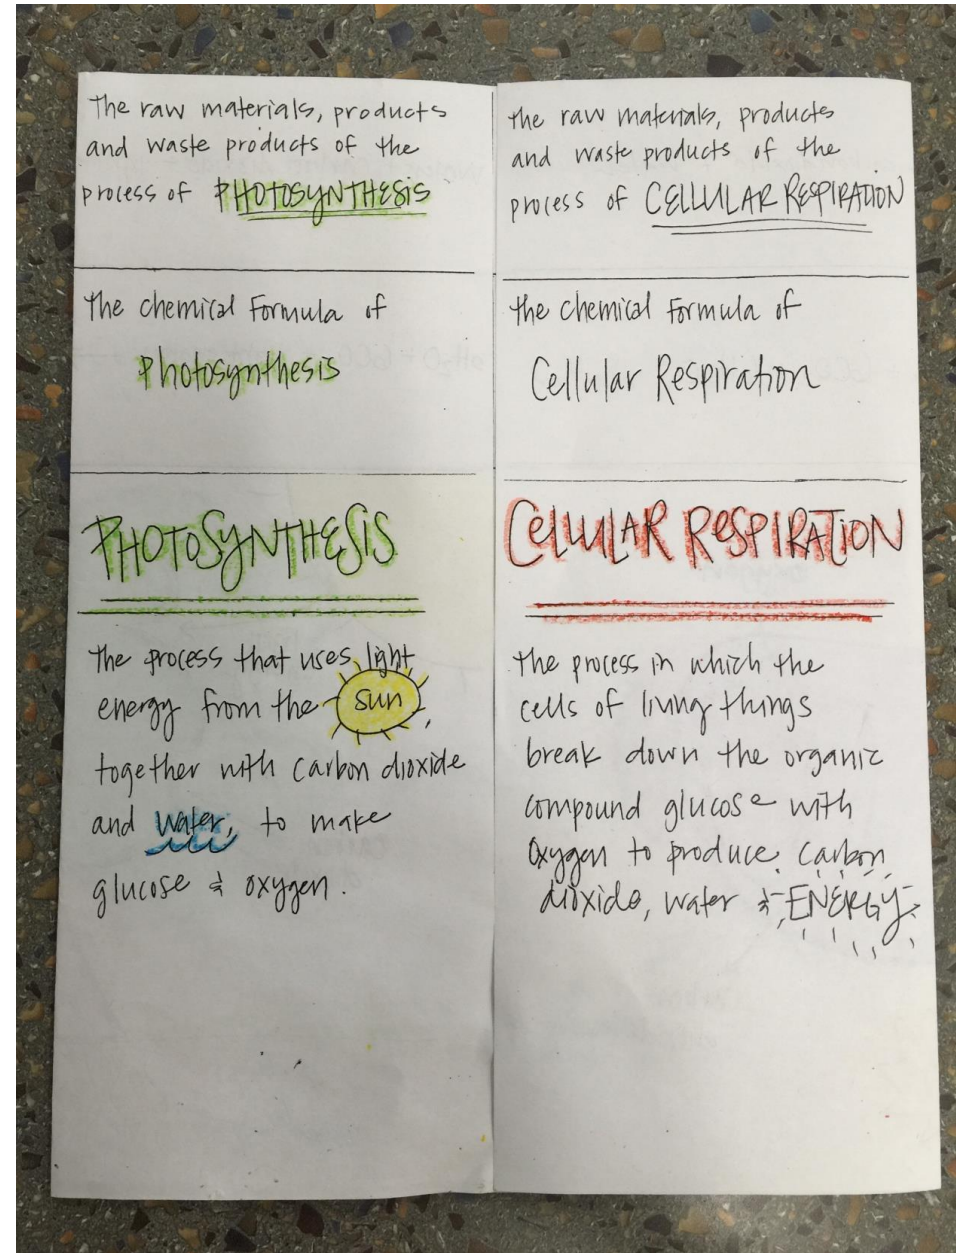 The raw materials, products
and waste products of the
process of PHOTOSYNTHESIS
The chemical Formula of
Photosynthesis
PHOTOSYNTHESIS
The process that uses light
energy from the sun,
together with carbon dioxide
and water, to make
glucose & oxygen.
The raw materials, products
and waste products of the
process of CELLULAR RESPIRATION
The chemical Formula of
Cellular Respiration
CELLULAR RESPIRATION
The process in which the
cells of living things
break down the organic
compound glucose with
oxygen to produce carbon
dioxide, water & ENERGY